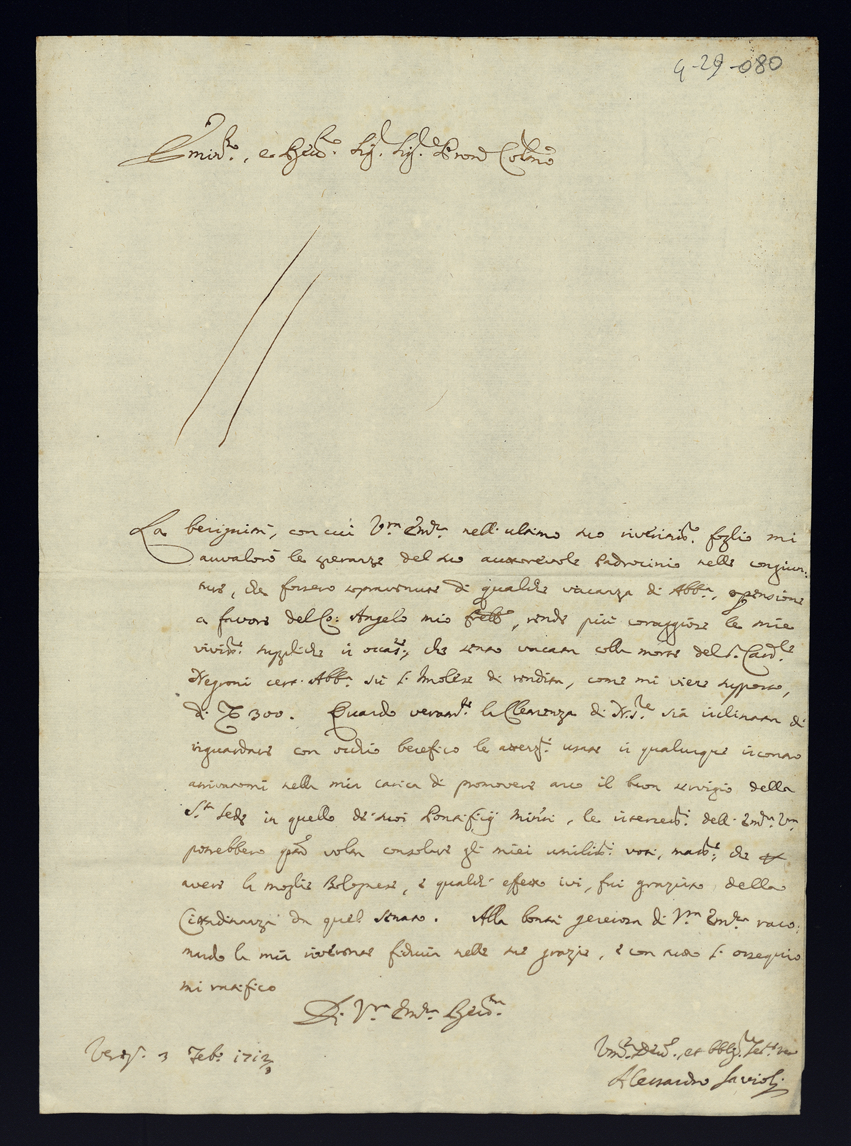 4-29-080
Emin.mo, e Rev.mo Sig.r Sig.r Pron Col.mo
La benignità, con cui V.ra Em.za nell'ultimo suo riverit.mo foglio mi
avvalorò le speranze del suo autorevole Padrocinio nelle congiun:
ture, che fossero sopravenute di qualche vacanza di Abb.a, o pensione
a favore del Co: Angelo mio frello, rende più coraggiose le mie
vivis.me suppliche in occas.e, che sento vacata colla morte del S.r Card.le
Negroni cert'Abb.a sù l'Imolese di rendita, come mi viene supposto,
di 300. Quando veram.te la Clemenza di N.S.re sia inclinata di
riguardare con occhio benefico le usate in qualunque incontro
nella mia carica di promovere anco il buon servigio della
S.ta Sede in quello de' suoi Pontificij Min.ri, le interced.i dell'Em.za V.ra
potrebbero voler consolare gl'miei umiliss.i voti, mass.e, che
avere la moglie Bolognese, e qualch'effetto ivi, fui graziato della
Cittadinanza da quel Senato. Alla bontà generosa di V.ra Em.za raco:
mando la mia riverente fiducia nelle sue grazie, e con tutto l'ossequio
mi ratifico
Di V.ra Em.za Rev.ma
Ven.a 3 Feb.o 1712/3
Um.mo Dev.mo, et Obblig.mo Ser.re vero
Alessandro Savioli